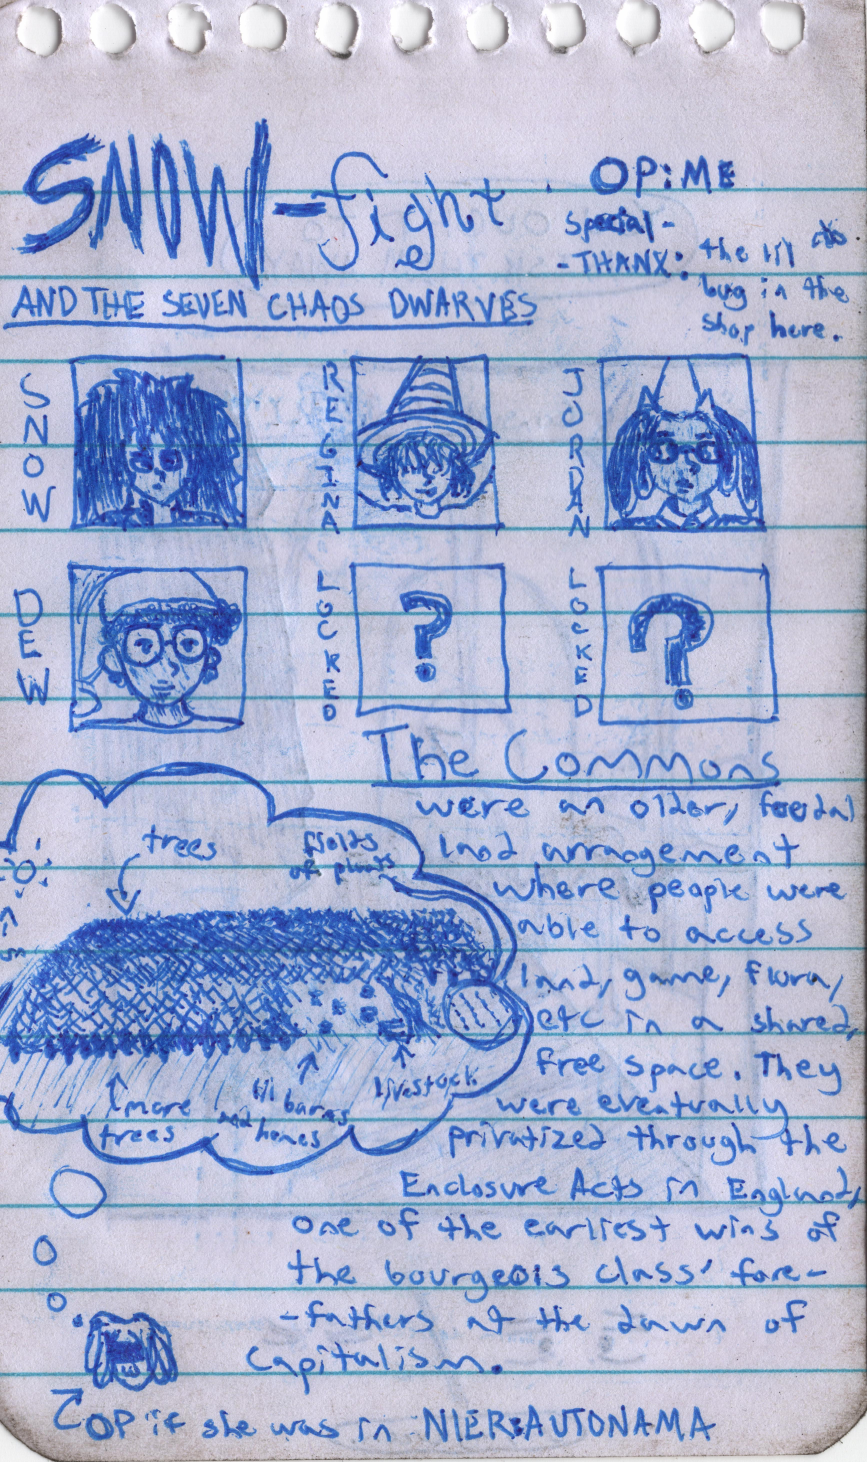 SNOW-fight
OP:ME
special-
-THANX: the lil
bug in the
shop here.
AND THE SEVEN CHAOS DWARVES
SNOW
REGINA
JORDAN
DEW
LOCKED
?
LOCKED
?
The Commons
were an older, feudal
land arrangement
where people were
able to access
land, game, flora,
etc in a shared,
free space. They
were eventually
privatized through the
Enclosure Acts in England,
one of the earliest wins of
the bourgeois class' fore-
-fathers at the dawn of
capitalism.
trees
fields
of plants
more
trees
lil barns
and homes
livestock
OP if she was in NIER:AUTONAMA